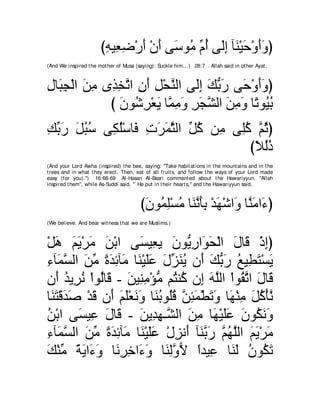 (وَأَوْحَيْنَآ إِلَى أُمِّ مُوسَى أَنْ أَرْضِعِيهِ)
(And We inspired the mother of Musa (saying): Suckle him...) 28:7 . Allah said in other Ayat,
(وَأَوْحَى رَبُّكَ إِلَى النَّحْلِ أَنِ اتَّخِذِى مِنَ الْجِبَالِ
بُيُوتًا وَمِنَ الشَّجَرِ وَمِمَّا يَعْرِشُونَ )
ثُمَّ كُلِى مِن كُلِّ الثَّمَرَتِ فَاسْلُكِى سُبُلَ رَبِّكِ
ذُلُلاً)
(And your Lord Awha (inspired) the bee, saying: "Take habitations in the mountains and in the
trees and in what they erect. Then, eat of all fruits, and follow the ways of your Lord made
easy (for you).") 16:68-69 Al-Hasan Al-Basri commented about the Hawariyyun, "Allah
inspired them", while As-Suddi said, "`He put in their hearts," and the Hawariyyun said,
(ءَامَنَّا وَاشْهَدْ بِأَنَّنَا مُسْلِمُونَ)
(We believe. And bear witness that we are Muslims.)
(إِذْ قَالَ الْحَوَارِيُّونَ يعِيسَى ابْنَ مَرْيَمَ هَلْ
يَسْتَطِيعُ رَبُّكَ أَن يُنَزِّلَ عَلَيْنَا مَآئِدَةً مِّنَ السَّمَآءِ
قَالَ اتَّقُواْ اللَّهَ إِن كُنْتُم مُّؤْمِنِينَ - قَالُواْ نُرِيدُ أَن
نَّأْكُلَ مِنْهَا وَتَطْمَئِنَّ قُلُوبُنَا وَنَعْلَمَ أَن قَدْ صَدَقْتَنَا
وَنَكُونَ عَلَيْهَا مِنَ الشَّـهِدِينَ - قَالَ عِيسَى ابْنُ
مَرْيَمَ اللَّهُمَّ رَبَّنَآ أَنزِلْ عَلَيْنَا مَآئِدَةً مِّنَ السَّمَآءِ
تَكُونُ لَنَا عِيداً لاٌّوَّلِنَا وَءَاخِرِنَا وَءَايَةً مِّنْكَ